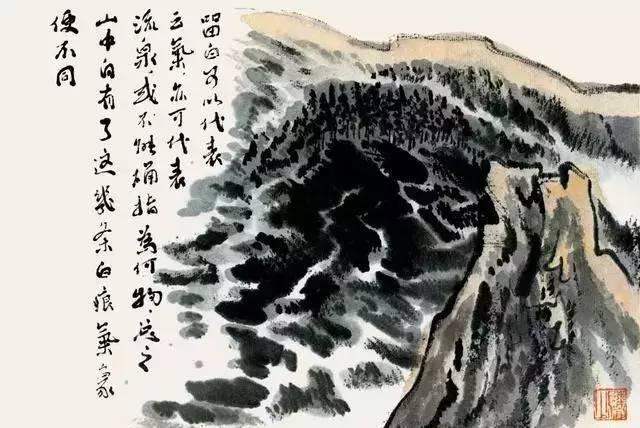 留白可以代表
云氣，亦可代表
流泉，或不能确指為何物，总之
山中自有了这幾条白痕氣象
便不同